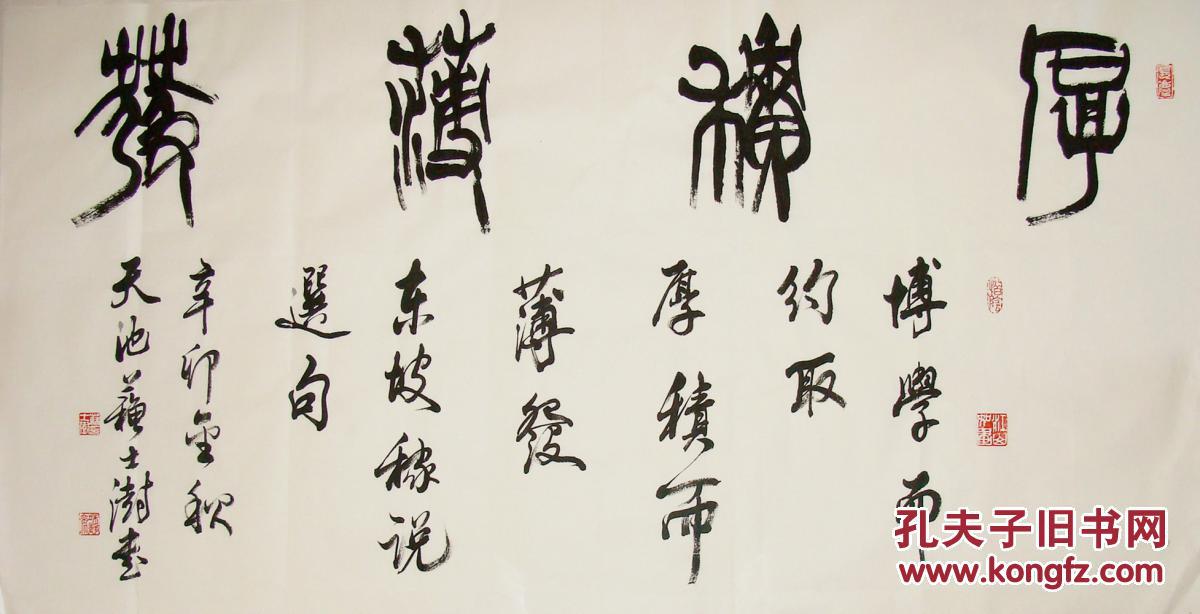 厚積薄發
博學而
約取
厚積而
薄發
东坡稼说
選句
辛卯金秋
天池蘇士澍書
孔夫子旧书网
www.kongfz.com